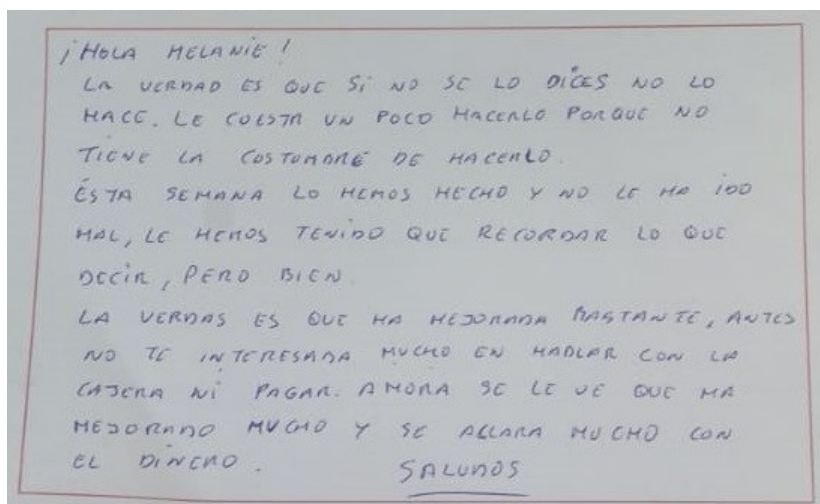 ¡HOLA MELANIE!
LA VERDAD ES QUE SI NO SE LO DICES NO LO
HACE. LE CUESTA UN POCO HACERLO PORQUE NO
TIENE LA COSTUMBRE DE HACERLO.
ÉSTA SEMANA LO HEMOS HECHO Y NO LE HA IDO
MAL, LE HEMOS TENIDO QUE RECORDAR LO QUE
DECIR, PERO BIEN.
LA VERDAS ES QUE HA MEJORADA BASTANTE, ANTES
NO TE INTERESADA MUCHO EN HABLAR CON LA
CAJERA NI PAGAR. AHORA SE LE VE QUE HA
MEJORADO MUCHO Y SE ACLARA MUCHO CON
EL DINERO.
SALUDOS